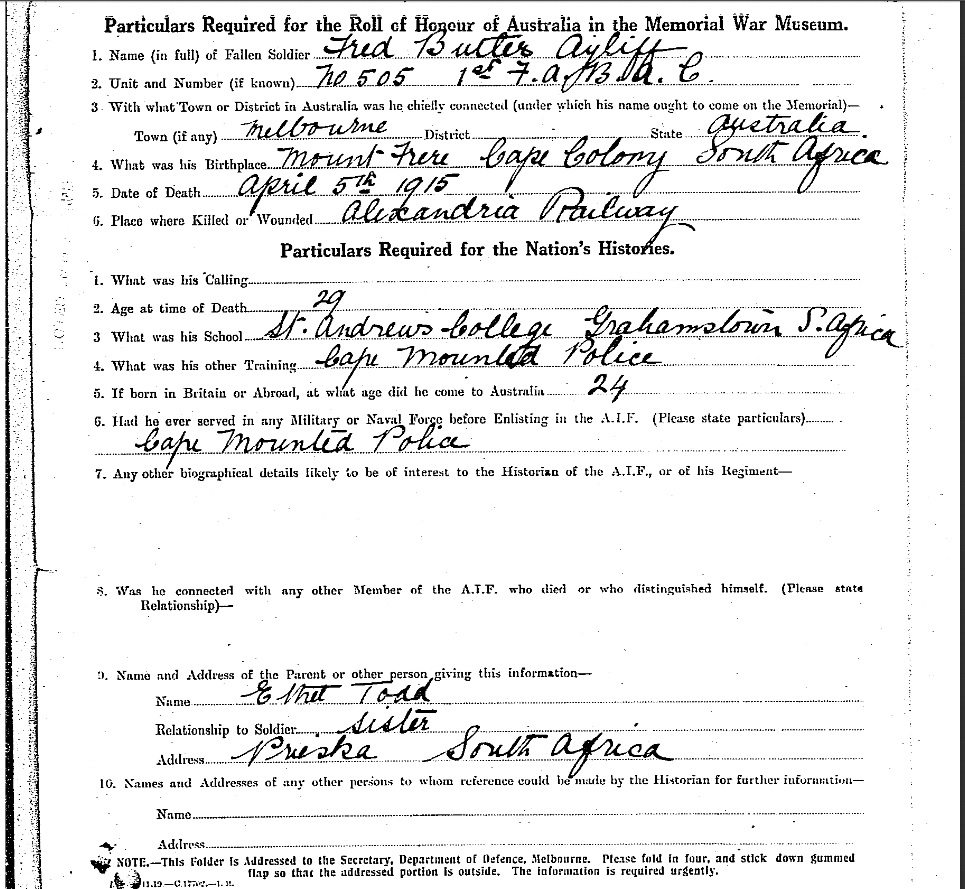 Particulars Required for the Roll of Honour of Australia in the Memorial War Museum.
1. Name (in full) of Fallen Soldier Fred Butler Ayliff
2. Unit and Number (if known) No 505 1st F.A.B.A.C.
3 With what Town or District in Australia was he chiefly connected (under which his name ought to come on the Memorial)—
Town (if any) Melbourne District State Australia.
4. What was his Birthplace Mount Frere Cape Colony South Africa
5. Date of Death April 5th 1915
6. Place where Killed or Wounded Alexandria Railway
Particulars Required for the Nation's Histories.
1. What was his Calling
2. Age at time of Death 29
3 What was his School St. Andrews College Grahamstown S. Africa
4. What was his other Training Cape Mounted Police
5. If born in Britain or Abroad, at what age did he come to Australia 24
6. Had he ever served in any Military or Naval Force before Enlisting in the A.I.F. (Please state particulars)
Cape Mounted Police
7. Any other biographical details likely to be of interest to the Historian of the A.I.F., or of his Regiment—
8. Was he connected with any other Member of the A.I.F. who died or who distinguished himself. (Please state
Relationship)—
9. Name and Address of the Parent or other person giving this information—
Name Ethel Todd
Relationship to Soldier Sister
Address Prieska South Africa
10. Names and Addresses of any other persons to whom reference could be made by the Historian for further information—
Name
Address
NOTE.—This Folder is Addressed to the Secretary, Department of Defence, Melbourne. Please fold in four, and stick down gummed
flap so that the addressed portion is outside. The information is required urgently.